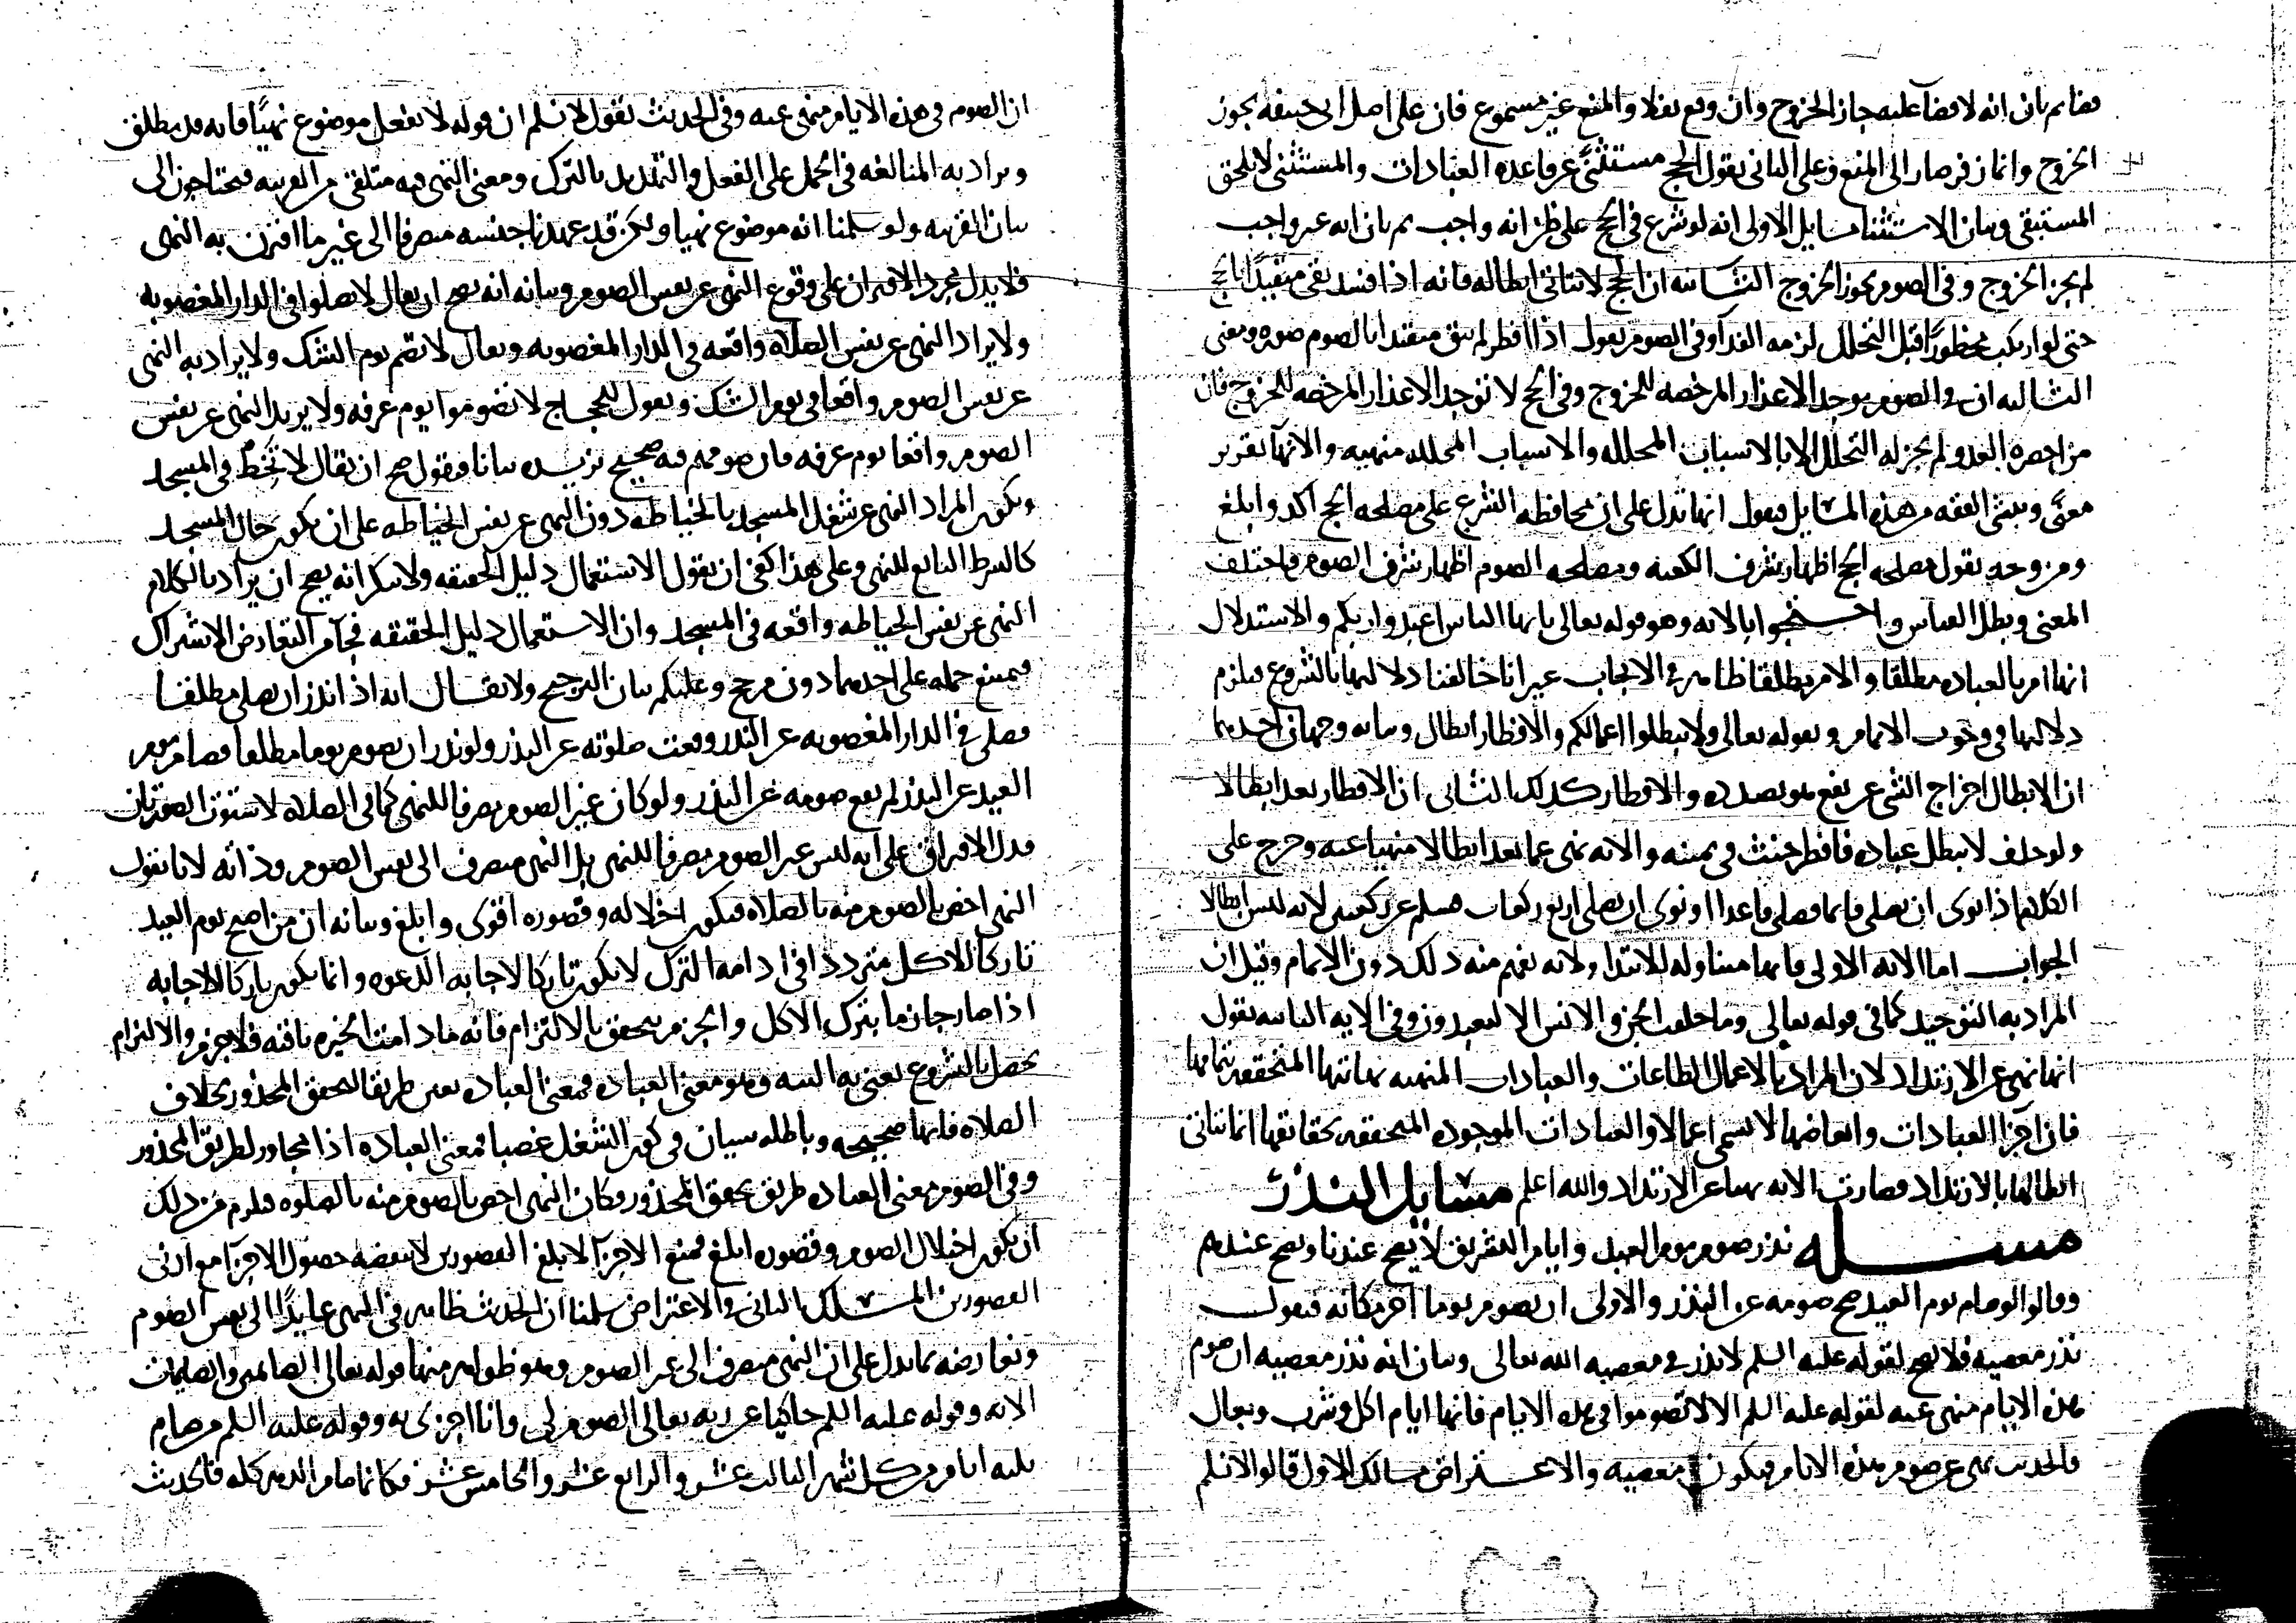 قضاء ثم بان انه لا قضا عليه جاز الخروج وان وقع نفلا والمنع غير مسموع فان على اصل ابي حنيفه يجوز
الخروج وانما زفر صار الى المنع وعلى الثاني نقول الحج مستثنى عن قاعده العبادات والمستثنى لا يلحق
المستبقى وبيان الاستثنا مسايل الاولى انه لو شرع في الحج على ظن انه واجب ثم بان انه غير واجب
لم يجز الخروج وفي الصوم يجوز الخروج الثانيه ان الحج لا يتاتى ابطاله فانه اذا فسد بقي متقيدا بالحج
حتى لو ارتكب محظورا قبل التحلل لزمه الفدا وفي الصوم نقول اذا افطر لم يبق متقيدا بالصوم صوره ومعنى
الثالثه ان في الصوم يوجد الاعذار المرخصه للخروج وفي الحج لا توجد الاعذار المرخصه للخروج فان
من احصره العدو لم يجز له التحلل الا بالاسباب المحلله والاسباب المحلله منهيه والانها تقرير
معنى ويبقى الفقه من هذه المسايل فيقول انها تدل على ان محافظه الشرع على مصلحه الحج اكد وابلغ
ومن وجه نقول مصلحه الحج اظهار شرف الكعبه ومصلحه الصوم اظهار شرف الصوم فاختلف
المعنى وبطل القياس واحتجوا بالايه وهو قوله تعالى يا ايها الناس اعبدوا ربكم والاستدلال
انها امر بالعباده مطلقا والامر مطلقا ظاهر في الايجاب غير انا خالفنا دلالتها بالشروع فيلزم
دلالتها في وجوب الاتمام وبقوله تعالى ولا تبطلوا اعمالكم والافطار ابطال وبيانه وجهان احدهما
ان الابطال اخراج الشي عن نفع هو بصدده والافطار كذلك الثاني ان الافطار يعد ابطالا
ولو حلف لا يبطل عباده فافطر حنث في يمينه والايه نهى عما يعد ابطالا منهيا عنه وخرج على
الكلام اذا نوى ان يصلي قايما فصلى قاعدا او نوى ان يصلي اربع ركعات فسلم عن ركعتين لانه ليس ابطالا
الجواب اما الايه الاولى فانها متناوله للابتدا ولانه يفهم منه ذلك دون الاتمام وقيل ان
المراد به التوحيد كما في قوله تعالى وما خلقت الجن والانس الا ليعبدون وفي الايه الثانيه نقول
انها نهي عن الارتداد لان المراد بالاعمال الطاعات والعبادات المنتهيه نهاياتها المتحققه بتمامها
فان اجزا العبادات وابعاضها لا تسمى اعمالا والعبادات الموجوده المتحققه بحقايقها انما يتاتى
ابطالها بالارتداد فصارت الايه نهيا عن الارتداد والله اعلم مسايل النذر
مسله نذر صوم يوم العيد وايام التشريق لا يصح عندنا ويصح عندهم
وقالوا لو صام يوم العيد صح صومه عن النذر والاولى ان يصوم يوما اخر مكانه فنقول
نذر معصيه فلا يصح لقوله عليه السلم لا نذر في معصيه الله تعالى وبيان انه نذر معصيه ان صوم
هذه الايام منهي عنه لقوله عليه السلم الا لا تصوموا في هذه الايام فانها ايام اكل وشرب وبعال
فالحديث نهي عن صوم هذه الايام فيكون معصيه والاعتراض مسالك الاول قالوا لا نسلم
ان الصوم في هذه الايام منهي عنه وفي الحديث نقول لا نسلم ان قوله لا تفعل موضوع نهيا فانه قد يطلق
ويراد به المبالغه في الحمل على الفعل والتهديد بالترك ومعنى النهي فيه متلقى من القرينه فيحتاجون الى
بيان القرينه ولو سلمنا انه موضوع نهيا ولكن قد عهدنا جنسه منصرفا الى غير ما اقترن به النهي
فلا يدل مجرد الاقتران على وقوع النهي عن نفس الصوم وبيانه انه يصح ان يقال لا تصلوا في الدار المغصوبه
ولا يراد النهي عن نفس الصلاه واقعه في الدار المغصوبه ويقال لا تصم يوم الشك ولا يراد به النهي
عن نفس الصوم واقعا في يوم الشك ويقول للحجاج لا تصوموا يوم عرفه ولا يريد النهي عن نفس
الصوم واقعا يوم عرفه فان صومهم فيه صحيح نزيده بيانا فنقول صح ان يقال لا تخط في المسجد
ويكون المراد النهي عن شغل المسجد بالخياطه دون النهي عن نفس الخياطه على ان يكون حال المسجد
كالشرط التابع للنهي وعلى هذا كفى ان نقول الاستعمال دليل الحقيقه ولا ينكر انه يصح ان يراد بالكلام
النهي عن نفس الخياطه واقعه في المسجد وان الاستعمال دليل الحقيقه فجآ من التعارض الاشتراك
فيمتنع حمله على احدهما دون مرجح وعليكم بيان الترجيح ولا يقال انه اذا نذر ان يصلي مطلقا
فصلى في الدار المغصوبه عن النذر وقعت صلوته عن النذر ولو نذر ان يصوم يوما مطلقا فصام يوم
العيد عن النذر لم يقع صومه عن النذر ولو كان غير الصوم مصرفا للنهي كما في الصلاه لاستوت الصورتان
فدل الافتراق على انه ليس غير الصوم مصرفا للنهي بل النهي منصرف الى نفس الصوم وذاته لانا نقول
النهي اخص بالصوم منه بالصلاه فيكون اخلاله وقصوره اقوى وابلغ وبيانه ان من اصبح يوم العيد
تاركا للاكل مترددا في ادامه الترك لا يكون تاركا لاجابه الدعوه وانما يكون تاركا للاجابه
اذا صار جازما بترك الاكل والجزم يتحقق بالالتزام فانه ما دامت الخيره باقيه فلا جزم والالتزام
يحصل بالشروع نعني به النيه وهو معنى العباده فمعنى العباده تعين طريقا لتحقق المحذور بخلاف
الصلاه فانها صحيحه وباطله سيان في كون الشغل غصبا فمعنى العباده اذا مجاور لطريق المحذور
وفي الصوم معنى العباده طريق تحقق المحذور فكان النهي اخص بالصوم منه بالصلوه فلزم من ذلك
ان يكون اخلال الصوم وقصوره ابلغ فمنع الاجزآ لابلغ القصورين لا ينقضه حصول الاجزآ مع ادنى
القصورين المسلك الثاني والاعتراض سلمنا ان الحديث ظاهر في النهي عايدا الى نفس الصوم
ونعارضه بما يدل على ان النهي منصرف الى غير الصوم وهو ظواهر منها قوله تعالى والصائمين والصايمات
الايه وقوله عليه السلم حاكيا عن ربه تعالى الصوم لي وانا اجزي به وقوله عليه السلم من صام
ثلثه ايام من كل شهر الثالث عشر والرابع عشر والخامس عشر فكانما صام الدهر كله فالحديث